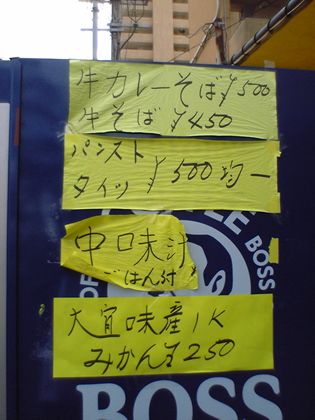 牛カレーそば ¥500
牛そば ¥450
パンスト
タイツ ¥500均一
中味汁
ごはん付
大宜味産1K
みかん¥250
BOSS
BOSS